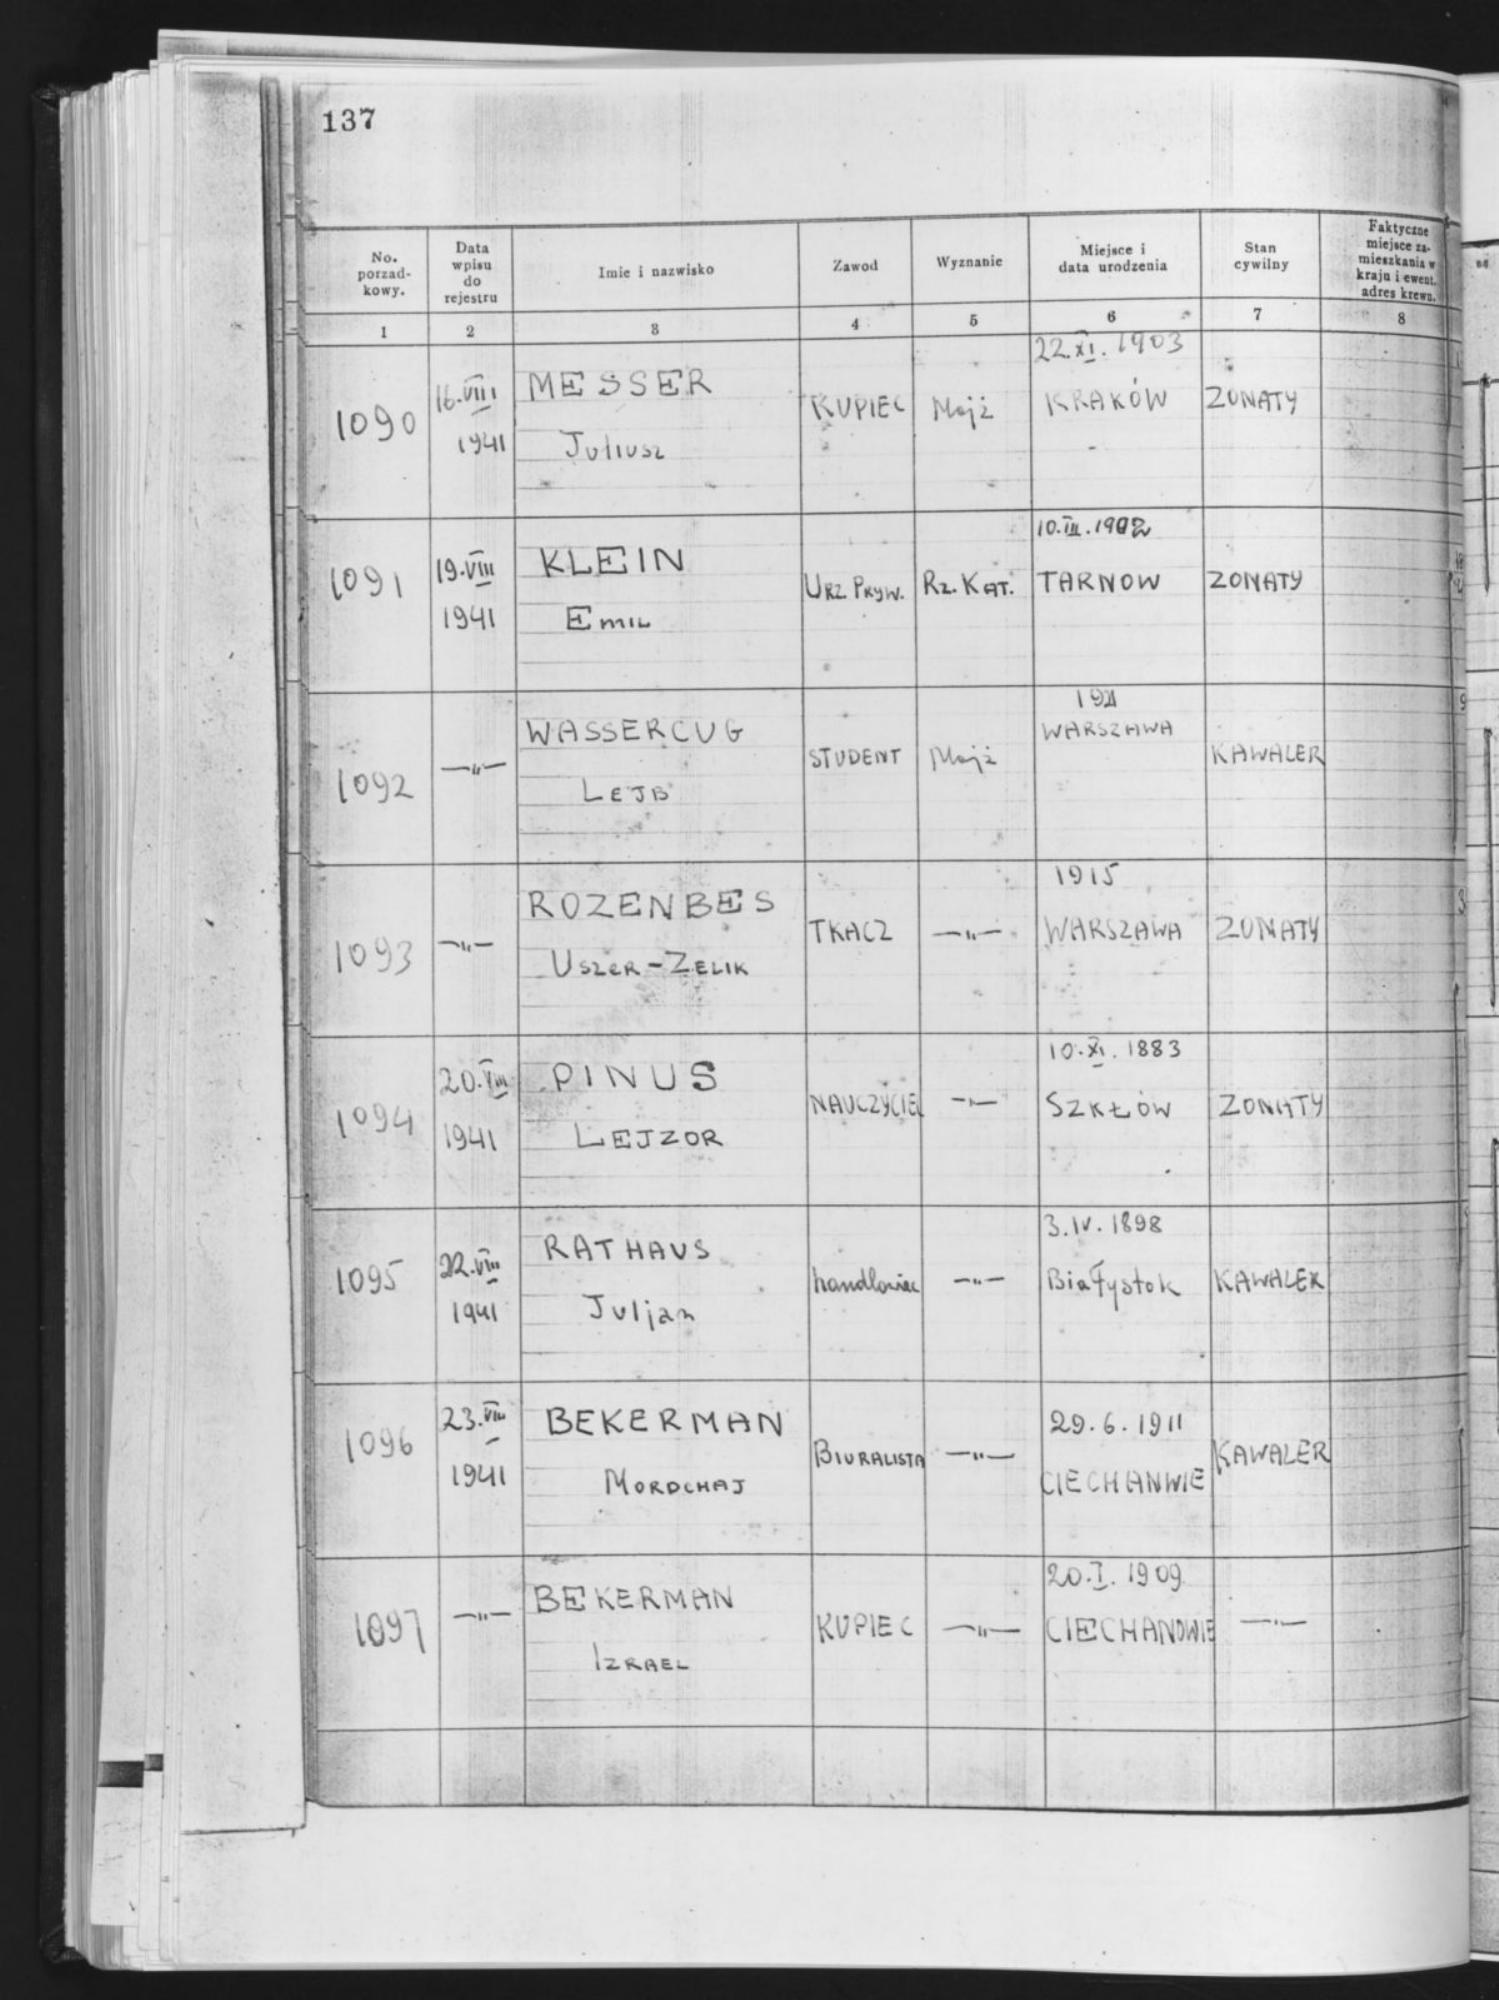 137
No. porzad- kowy.
Data wpisu do rejestru
Imie i nazwisko
Zawod
Wyznanie
Miejsce i data urodzenia
Stan cywilny
Faktyczne miejsce za- mieszkania w kraju i ewent. adres krewn.
1 2 3 4 5 6 7 8
22.XI.1903
1090 16.VIII MESSER KUPIEC Mojż KRAKÓW ZONATY
1941 Juliusz
10.III.1902
1091 19.VIII KLEIN URZ PRYW. RZ. KAT. TARNOW ZONATY
1941 EMIL
1921
WASSERCUG WARSZAWA
1092 —"— STUDENT Mojż KAWALER
LEJB
1915
ROZENBES
1093 —"— TKACZ —"— WARSZAWA ZONATY
USZER-ZELIK
10.XI.1883
1094 20.VIII PINUS NAUCZYCIEL —"— SZKŁÓW ZONATY
1941 LEJZOR
3.IV.1898
1095 22.VIII RATHAUS handlowiec —"— Białystok KAWALER
1941 Juljan
23.VIII BEKERMAN 29.6.1911
1096 BIURALISTA —"— KAWALER
1941 MORDCHAJ CIECHANWIE
20.I.1909
BEKERMAN
1097 —"— KUPIEC —"— CIECHANOWIE —"—
IZRAEL